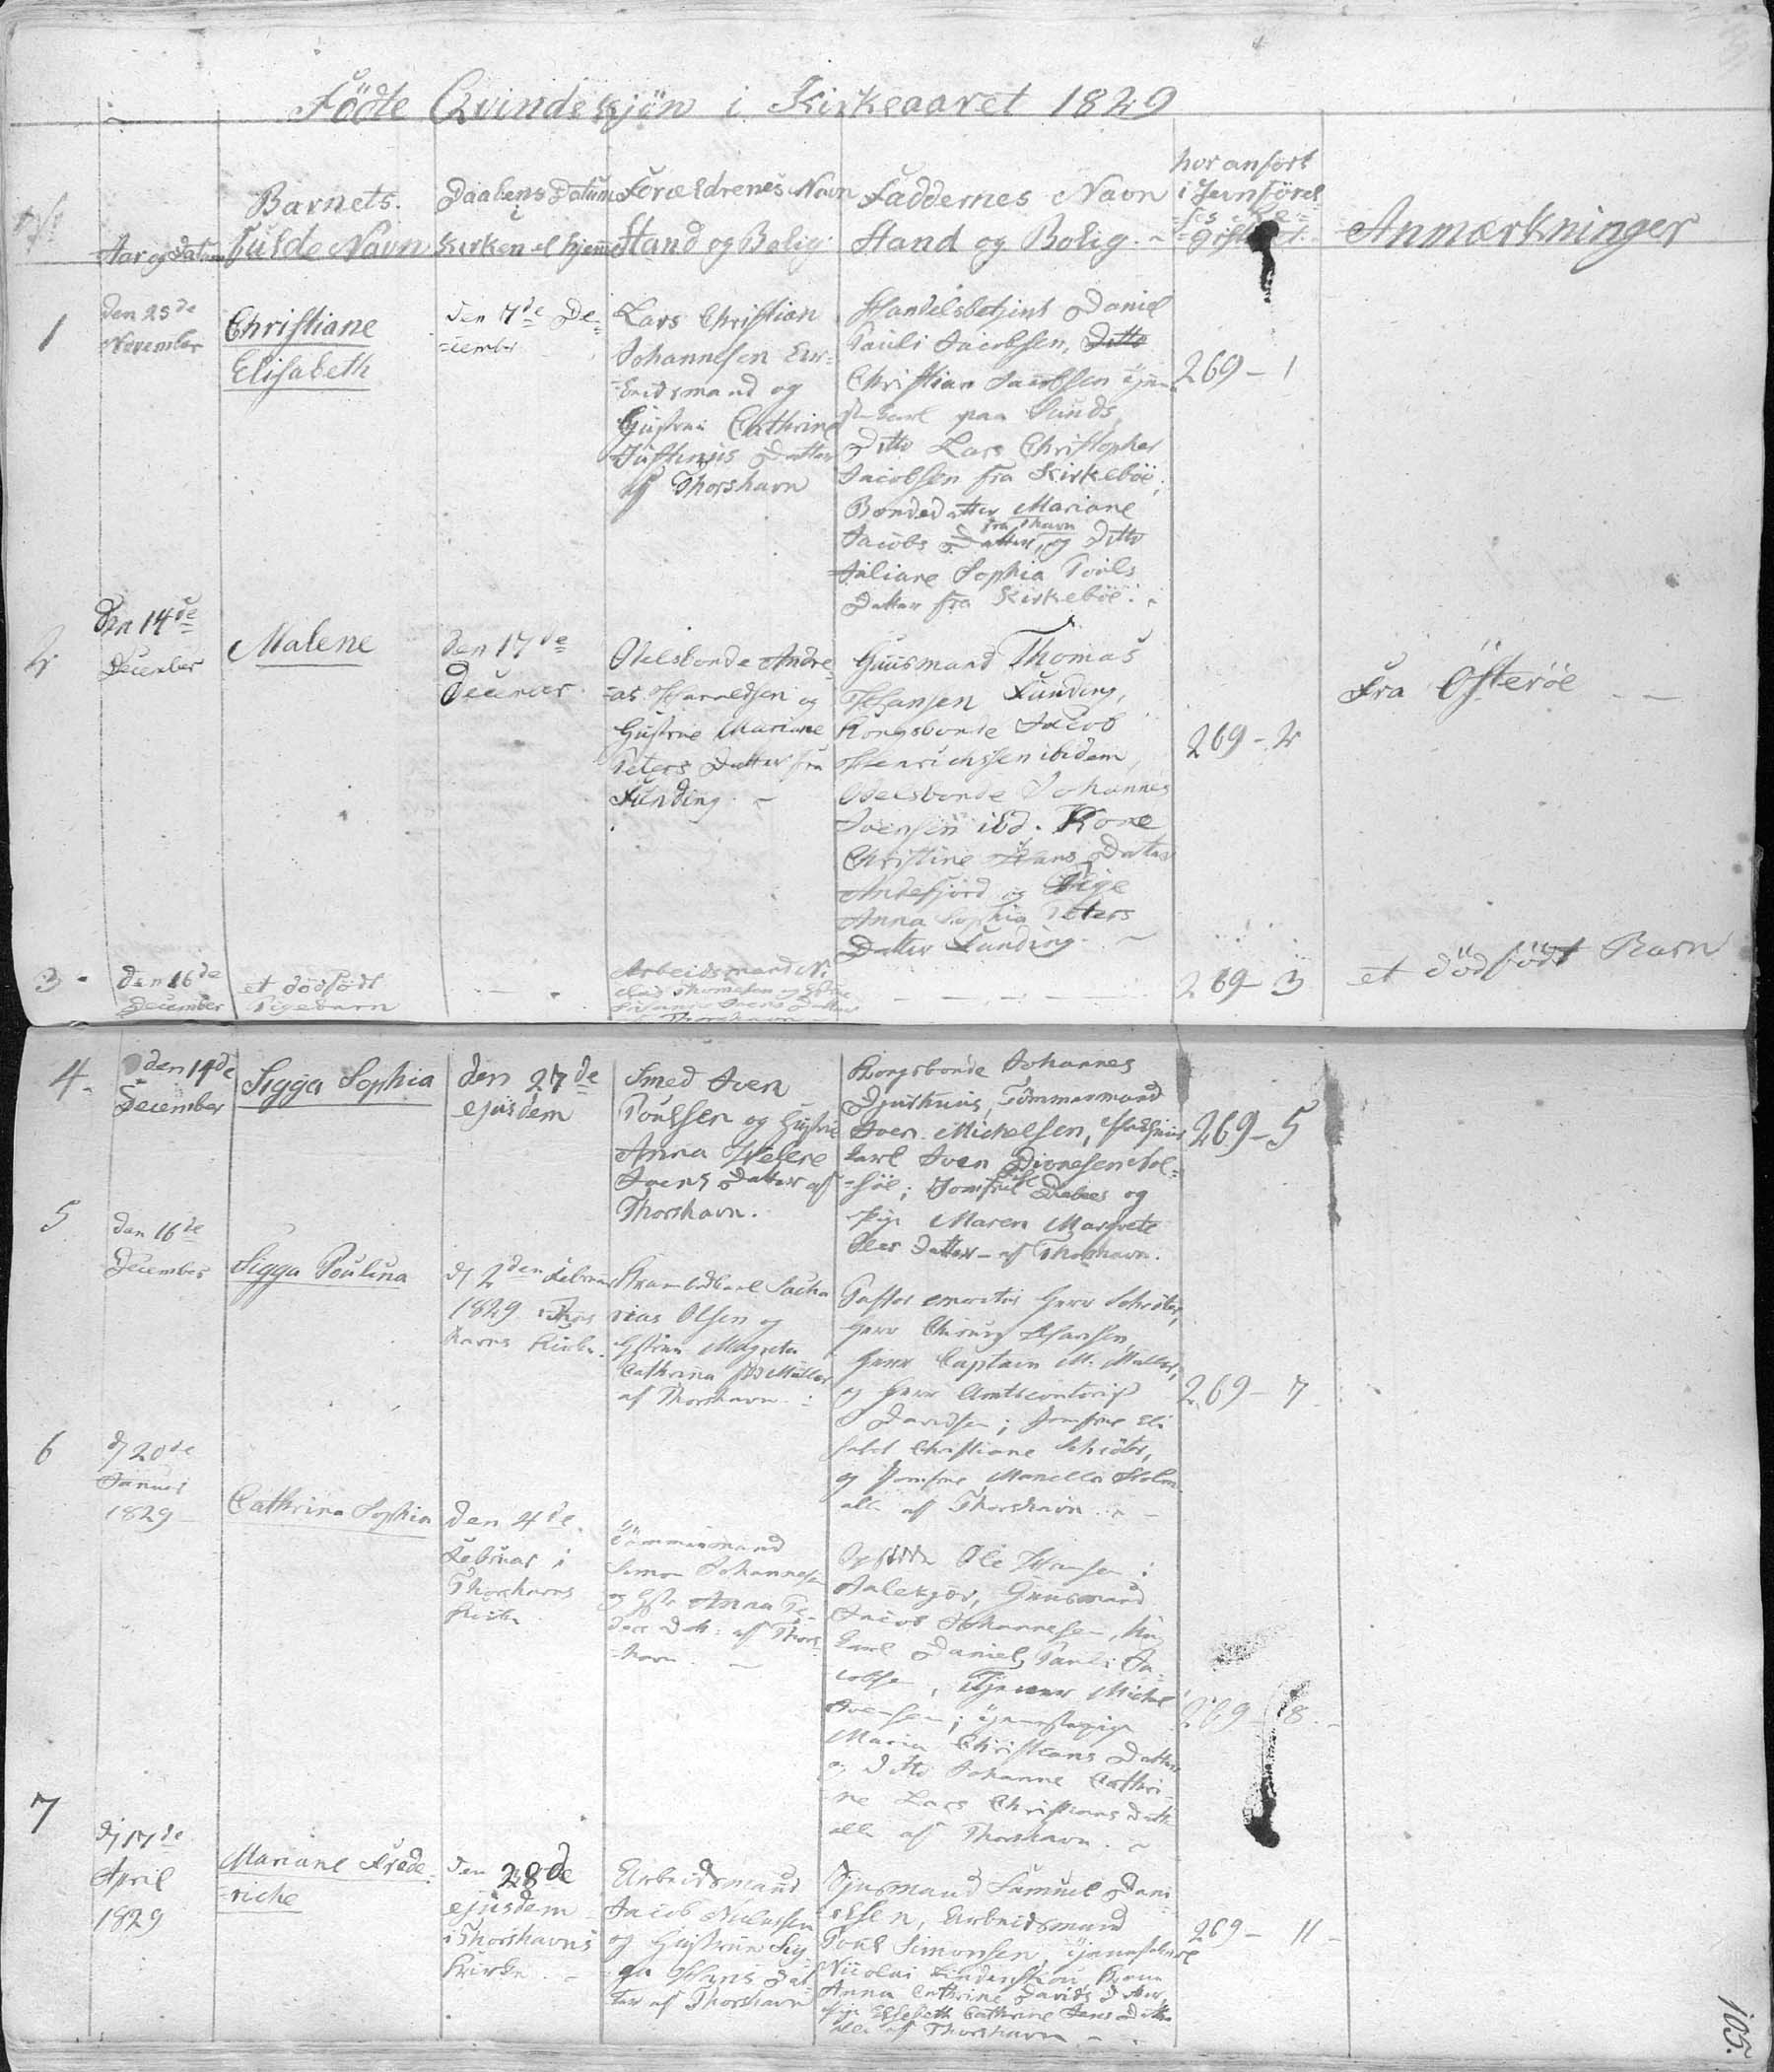 Födte Qvindekjön i Kirkeaaret 1829
No
Aar og Datum
Barnets
fulde Navn
Daabens Datum
i
Kirken el hjem̄e
Forældrenes Navn
Stand og Bolig
Faddernes Navn
Stand og Bolig
hvor anfört
i Jevnförel
Anmærkninger
1
den 25de
November
Christiane
Elisabeth
den 7de De-
=cember
Lars Christian
Johannesen
=beidsmand og
Hustrue Cathrine
Datter
af Thorshavn
Handelsbetjent Daniel
Pauli Jacobsen, Ditto
Christian Jacobsen
karl paa Sund,
Ditto Lars Christopher
Jacobsen fra Kirkeböe,
Bondedatter Mariane
fra Thavn
Jacobs Datter, og Ditto
Juliane Sophia Pouls
Datter fra Kirkeböe.
269 - 1
2
Den 14de
December
Malene
den 17de
December
Odelsbonde Andre
=as Haraldsen og
Hustrue Mariane
Peters Datter fra
Funding
Huusmand Thomas
Hansen Funding,
Kongsbonde Jacob
Henrichsen ibidem,
Odelsbonde Johannes
Joensen ibd. Kone
Christine Hans Datter
Andefjord og Pige
Anna Sophia Peters
Datter Funding.
269 - 2
Fra Österöe
3
den 16de
December
et dödfödt
Pigebarn
Arbeidsmand
Thomesen og
Joens Datter
Thorshavn
269 - 3
et dödfödt Barn
4
den 14de
December
Sigga Sophia
den 27de
ejusdem
Smed Joen
Poulsen og Hustrue
Anna Helene
Joens Datter af
Thorshavn.
Kongsbonde Johannes
Djurhuus, Tömmermand
Joen Michelsen,
karl Joen Nol-
=söe; Jomfrue Debes og
Pige Maren Margrete
Oles Datter - af Thorshavn.
269 - 5
5
den 16de
December
Sigga Poulina
d 2den Februar
1829 i Thors
havns Kirke.
Sacha
rias Olsen og
Hstrue Magreta
Cathrina Müller
af Thorshavn
Pastor emeritus Herr Schröter,
Herr Chirurg Hansen,
Herr Captain M. Müller,
og Herr Amtscontorist
Davidsen; Jomfrue Eli
sabet Christiane Schröter,
og Jomfrue Manella Holm
alle af Thorshavn
269 - 7
6
d 20de
Januar
1829
Cathrina Sophia
den 4de
Februar i
Thorshavns
Kirke
Tömmermand
Simon Johannesen
og Hstr Anna Pe-
Datt: af Thors-
=havn.
Ole Hansen i
Huusmand
Jacob Johannesen,
karl Daniel Pauli Ja-
cobsen, Tjener Michel
Joensen; Tjenestepige
Maria Christians Datter
og Ditto Johanne Cathri-
ne Lars Christians Datt
alle af Thorshavn.
269 - 8
7
d 17de
April
1829
Mariane Frede-
=riche
den 28de
ejusdem
i Thorshavns
Kirke
Arbeidsmand
Jacob Nielessen
og Hustrue Sig-
ga Hans Dat
ter af Thorshavn
Huusmand Samuel Dani
elsen, Arbeidsmand
Poul Simonsen, Tjenestekarl
Nicolai Kone
Anna Cathrine Davids Datter,
Pige Elsebeth Cathrine Jens Datter
alle af Thorshavn
269 - 11
105.